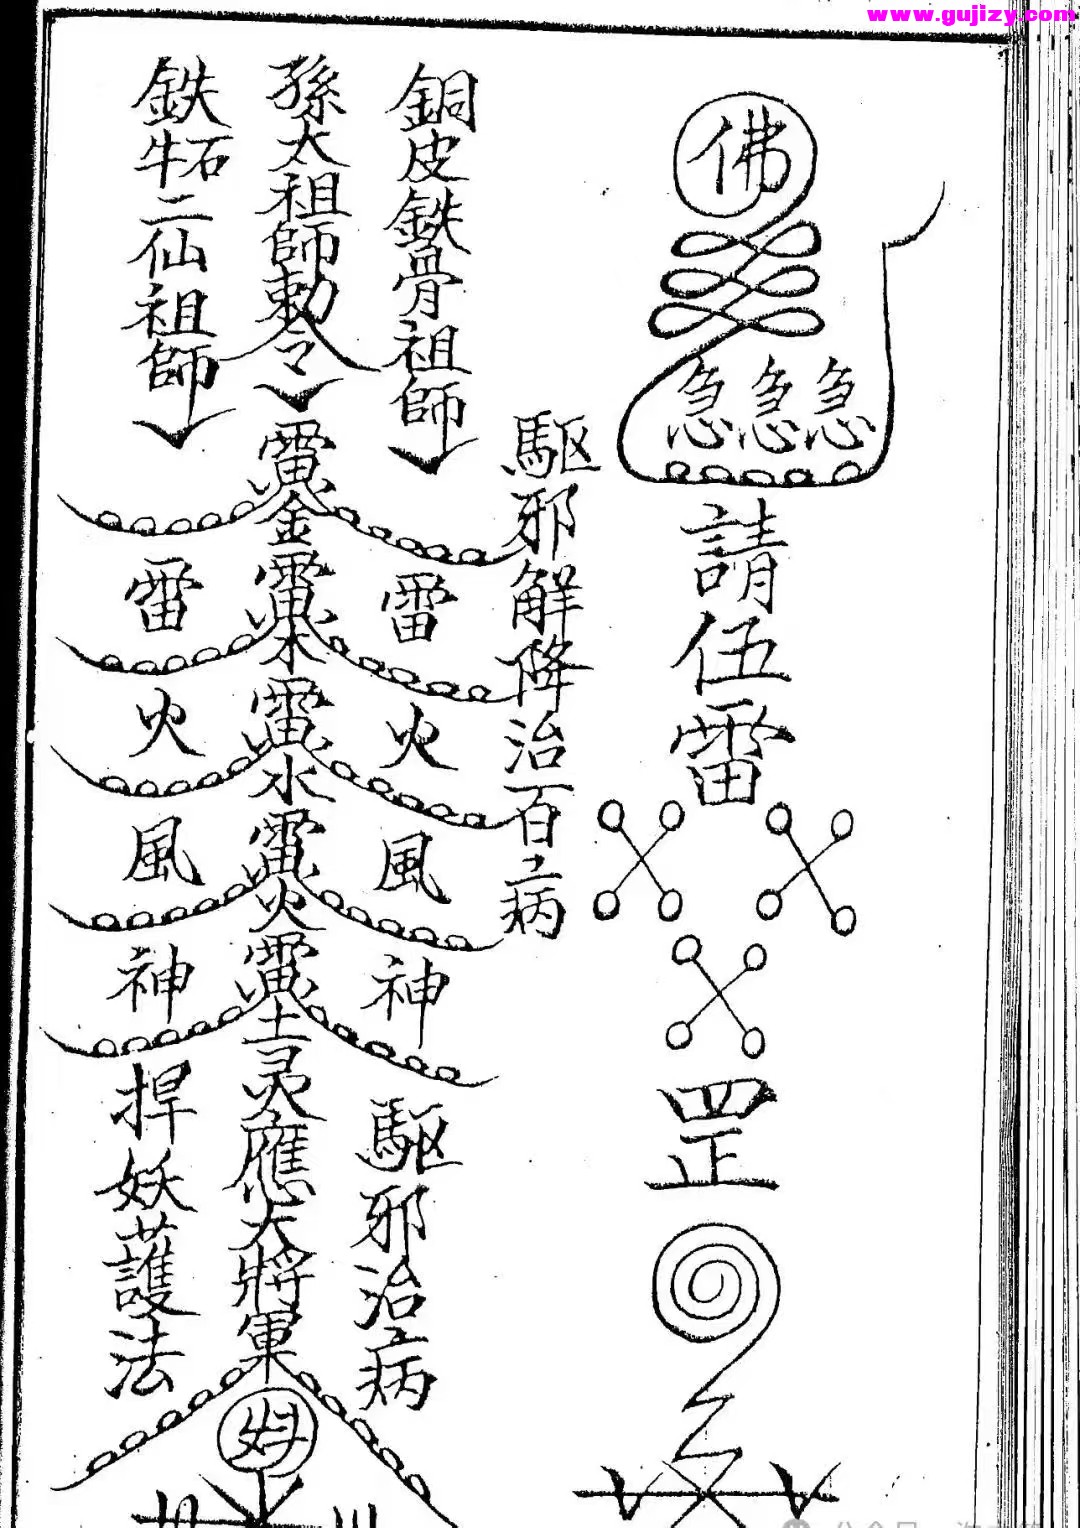 www.gujizy.com
佛
急急急
請伍雷
罡
驅邪解降治百病
銅皮鉄骨祖師
雷火風神
驅邪治病
孫太祖師勅令
雷金雷木雷水雷火雷土灵應大將軍
鉄牛石二仙祖師
雷火風神
捍妖護法